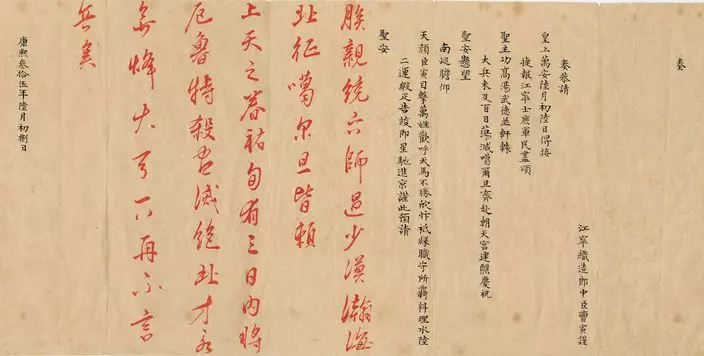 奏
江寧織造郎中臣曹寅謹
奏恭請
皇上萬安陸月初陸日得接
捷報江寧士庶軍民盡頌
聖主功高湯武德並軒轅
大兵未及百日蕩滅噶爾旦齊赴朝天宮建醮慶祝
聖安懸望
南巡瞻仰
天顏臣寅目擊萬姓歡呼犬馬不勝欣忭祗緣職守所羈料理水陸
二運緞疋告竣即星馳進京謹此預請
聖安
朕親統六師過少漠瀚海
北征噶尔旦皆賴
上天之眷祐旬有三日內將
厄魯特殺盡滅絕北方永
無烽火再不言
兵矣
康熙叁拾伍年陸月初捌日